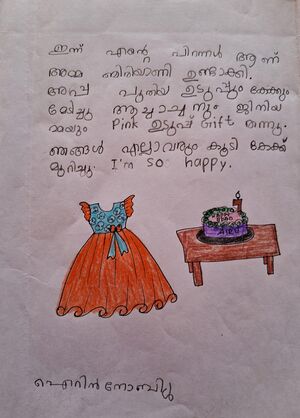 ഇന്ന് എന്റെ പിറന്നാൾ ആണ്
അമ്മ ബിരിയാണി ഉണ്ടാക്കി.
അച്ഛ പുതിയ ഉടുപ്പും കേക്കും
മേടിച്ചു ആച്ചാച്ചനും ജിനിയ
മ്മയും Pink ഉടുപ്പ് Gift തന്നു.
ഞങ്ങൾ എല്ലാവരും കൂടി കേക്ക്
മുറിച്ചു. I'm so happy.
ഐറിൻ നോബിൾ